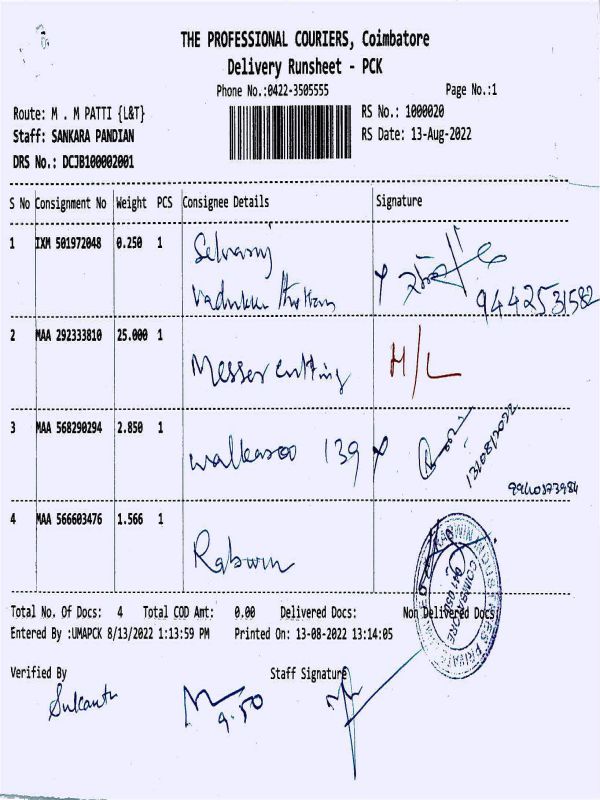 THE PROFESSIONAL COURIERS, Coimbatore
Delivery Runsheet - PCK
Phone No.:0422-3505555 Page No.:1
Route: M . M PATTI {L&T} RS No.: 1000020
Staff: SANKARA PANDIAN RS Date: 13-Aug-2022
DRS No.: DCJB100002001
S No Consignment No Weight PCS Consignee Details Signature
1 IXM 501972048 0.250 1 Selvaraj
9442531582
2 MAA 292333810 25.000 1 Messer cutting H/L
3 MAA 568290294 2.850 1 walkaroo 139
13/08/2022
4 MAA 566603476 1.566 1
COIMBATORE
Total No. Of Docs: 4 Total COD Amt: 0.00 Delivered Docs: Non Delivered Docs:
Entered By :UMAPCK 8/13/2022 1:13:59 PM Printed On: 13-08-2022 13:14:05
Verified By Staff Signature
9.50